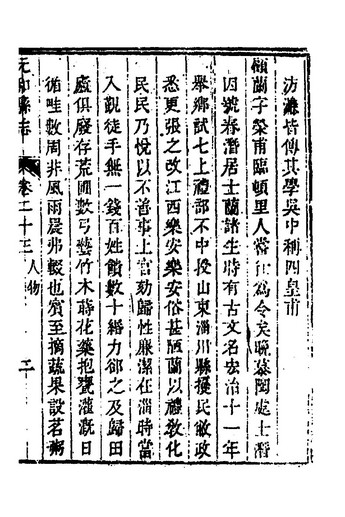 汸濂皆傳其學吳中稱四皇甫
顧蘭字榮甫臨頓里人嘗仕為令矣晚慕陶處士潛
因號春潛居士蘭諸生時有古文名宏治十一年
舉鄉試七上禮部不中授山東淄川縣擾民敝政
悉更張之改江西樂安樂安俗甚陋蘭以禮敎化
民民乃悅以不善事上官劾歸性廉潔在淄時當
入覲徒手無一錢百姓餽數十緡力卻之及歸田
廬俱廢存荒圃數弓藝竹木蒔花藥抱甕灌溉日
循畦數周非風雨晨弗輟也賓至摘蔬果設茗粥
元和縣志 卷二十三 人物 二